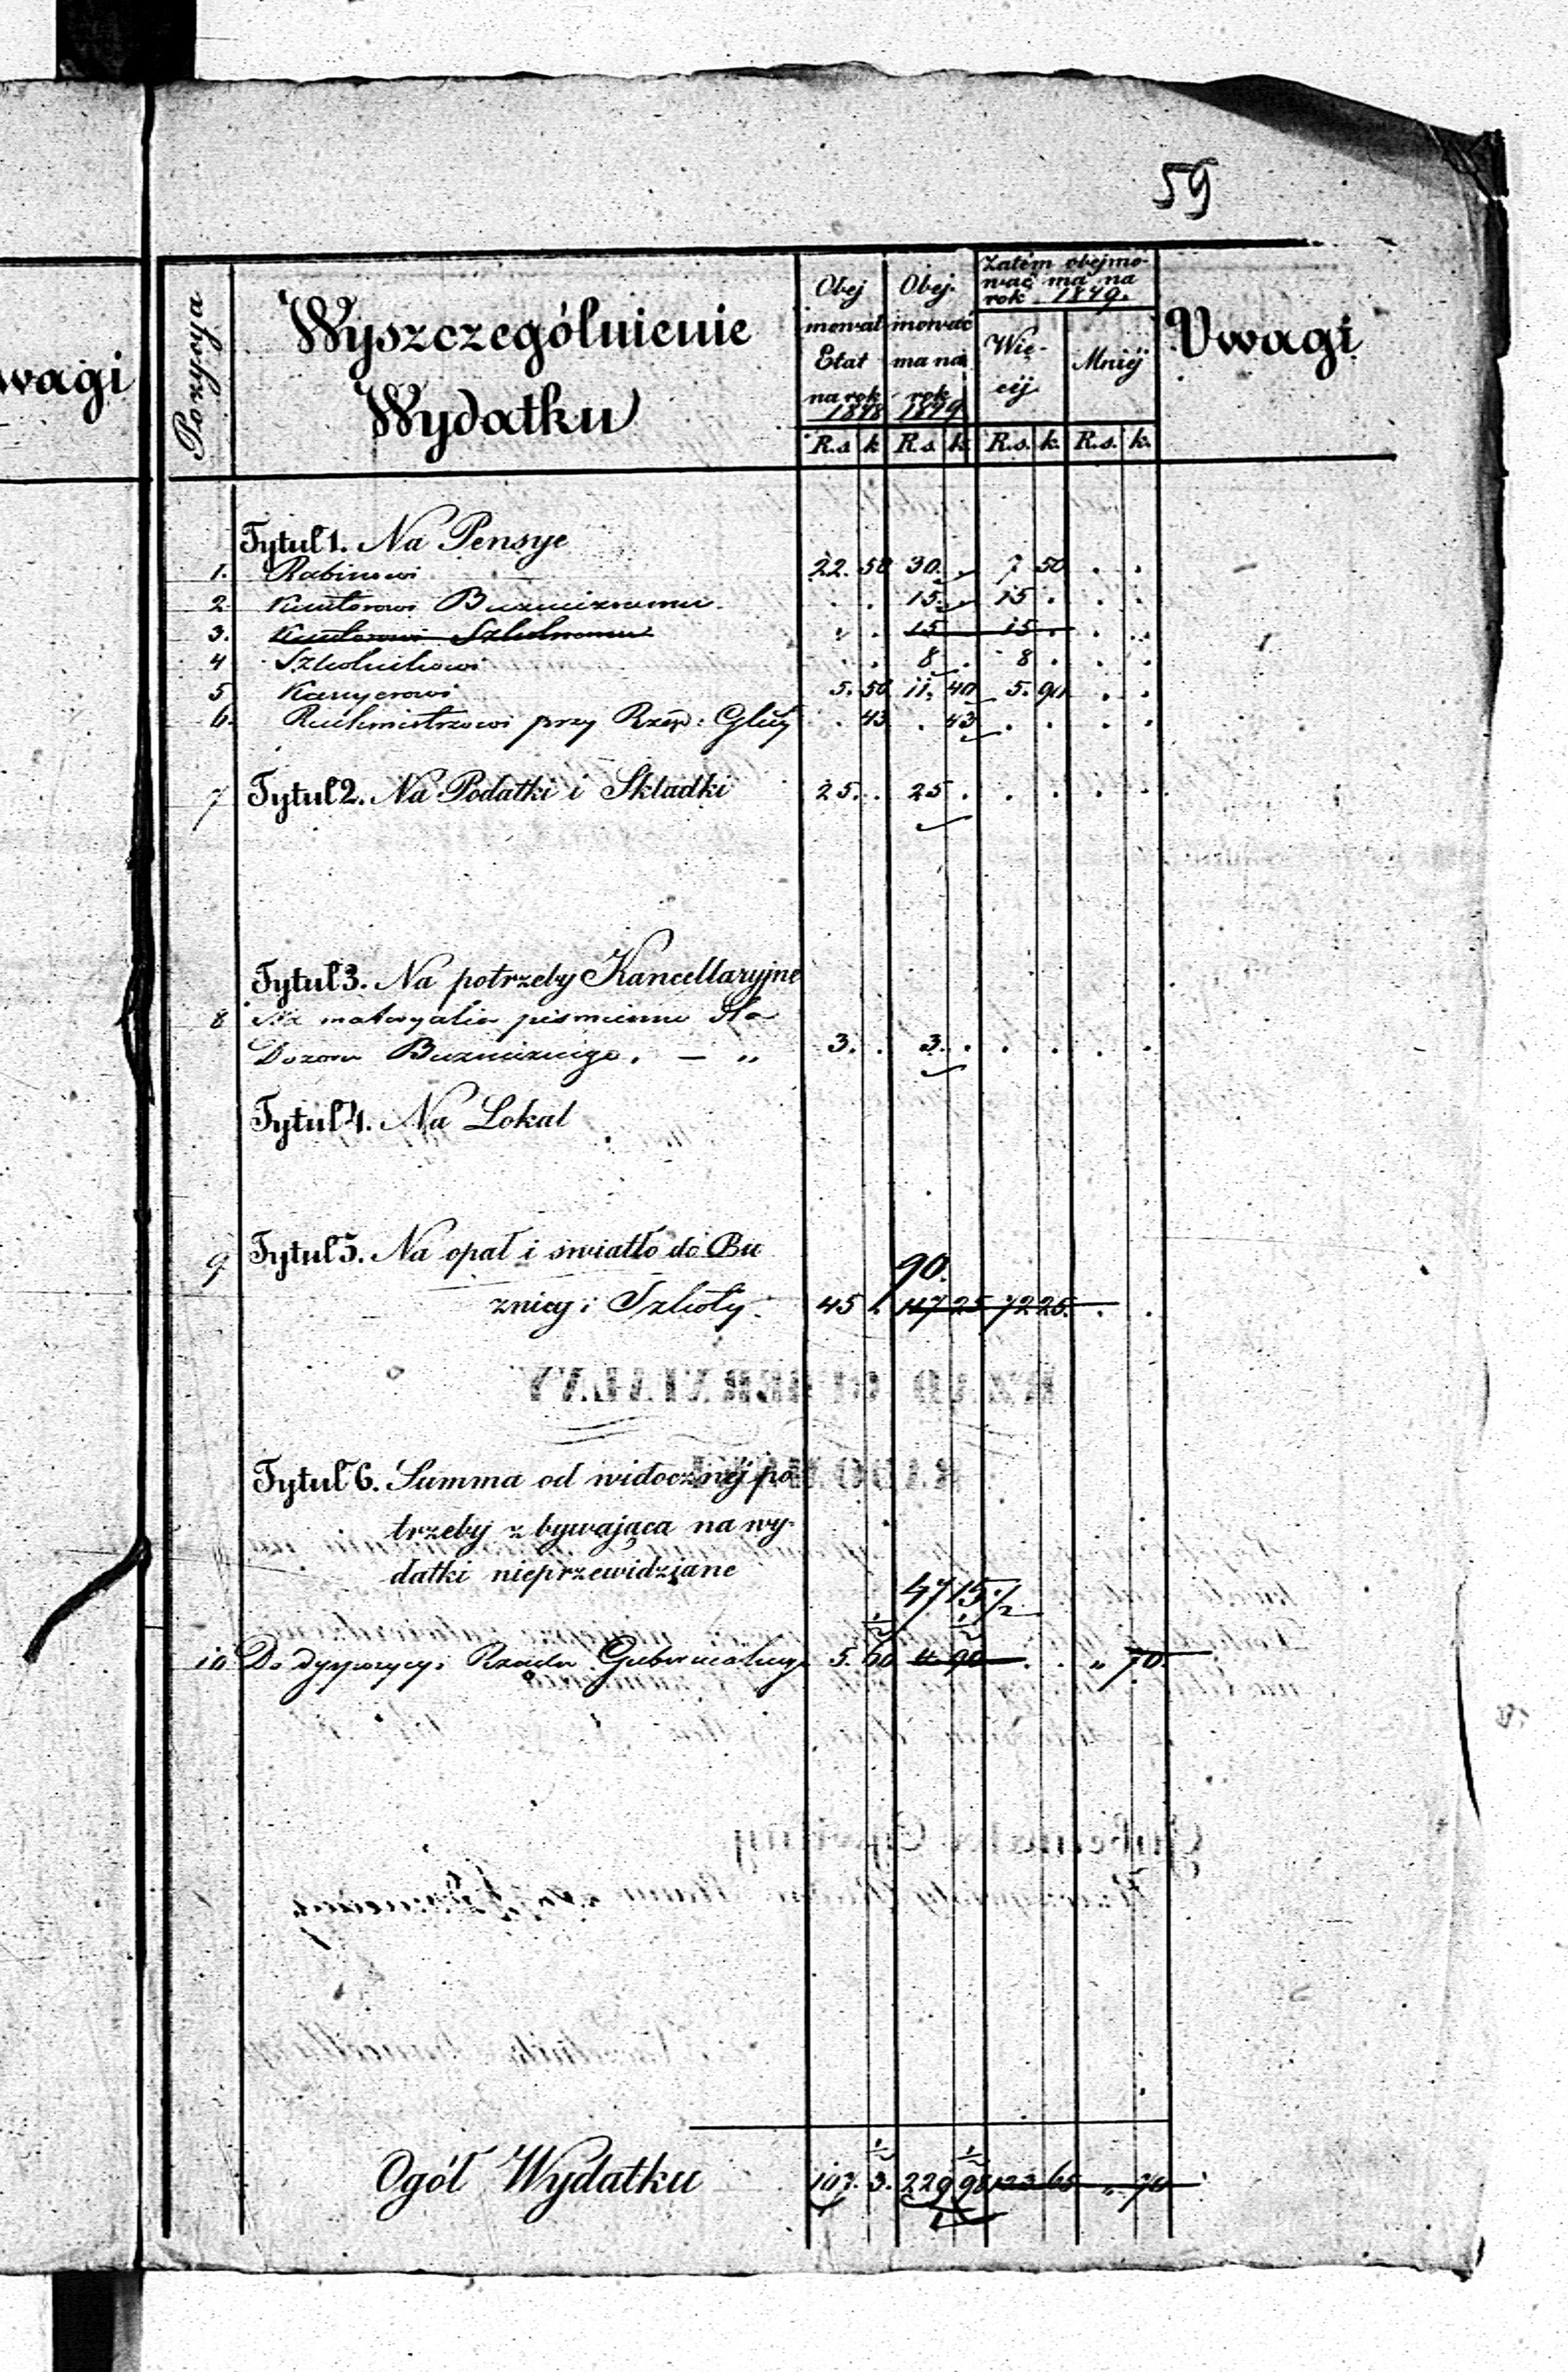 59
wagi
Pozycya
Wyszczególnienie
Wydatku
Obej
mował
Etat
na rok
1848
Obej-
mować
ma na
rok
1849
Zatém obejmo-
wać ma na
rok 1849.
Wię-
céj
Mniéj
Uwagi
R.s. k. R.s. k. R.s. k. R.s. k.
Tytuł 1. Na Pensye
1. Rabinowi 22. 50 30. 7 50
2 Kantorowi Buznicznemu 15. 15
3. Kantorowi Szkolnemu 15 15
4 Szkolnikowi 8 8
5 Kassyerowi 5. 50 11. 40 5. 90
6. Rachmistrzowi przy Rząd: Gub: 43 43
7 Tytuł 2. Na Podatki i Składki 25. 25
Tytuł 3. Na potrzeby Kancellaryjne
8 Na materyalia piśmienne dla
Dozoru Buzniczego. — „ 3. 3.
Tytuł 4. Na Lokal
9 Tytuł 5. Na opał i światło do Bu
90.
znicy i Szkoły. 45 117 25 72 25
RZĄD GUBERNIALNY
Tytuł 6. Summa od widocznéj po
trzeby zbywająca na wy-
datki nieprzewidziane
47 15 ½
10 Do dyspozycyi Rządu Gubernialnego 5. 60 ½ 4 90 ½ „ 70
Ogół Wydatku 107. 3. ½ 229 98 ½ 123 65 „ 70